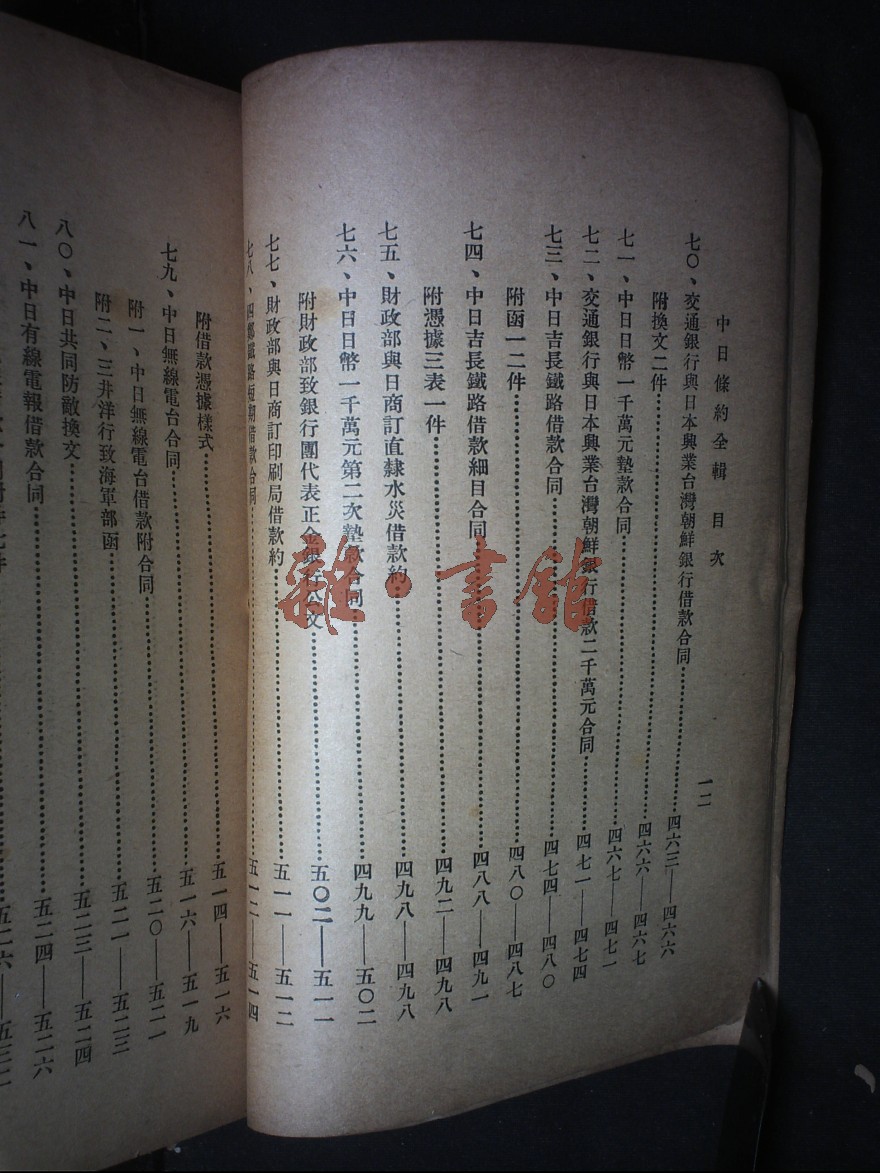 中日條約全輯 目次 一二
七〇、交通銀行與日本興業台灣朝鮮銀行借款合同……四六三——四六六
附換文二件……四六六——四六七
七一、中日日幣一千萬元墊款合同……四六七——四七一
七二、交通銀行與日本興業台灣朝鮮銀行借款二千萬元合同……四七一——四七四
七三、中日吉長鐵路借款合同……四七四——四八〇
附函一二件……四八〇——四八七
七四、中日吉長鐵路借款細目合同……四八八——四九一
附憑據三表一件……四九二——四九八
七五、財政部與日商訂直隸水災借款約……四九八——四九八
七六、中日日幣一千萬元第二次墊款合同……四九九——五〇二
附財政部致銀行團代表正金銀行公文……五〇二——五一一
七七、財政部與日商訂印刷局借款約……五一一——五一二
七八、四鄭鐵路短期借款合同……五一二——五一四
附借款憑據樣式……五一四——五一六
七九、中日無線電台合同……五一六——五一九
附一、中日無線電台借款附合同……五二〇——五二一
附二、三井洋行致海軍部函……五二一——五二三
八〇、中日共同防敵換文……五二三——五二四
八一、中日有線電報借款合同……五二四——五二六
五二六——五三二
雜·書館